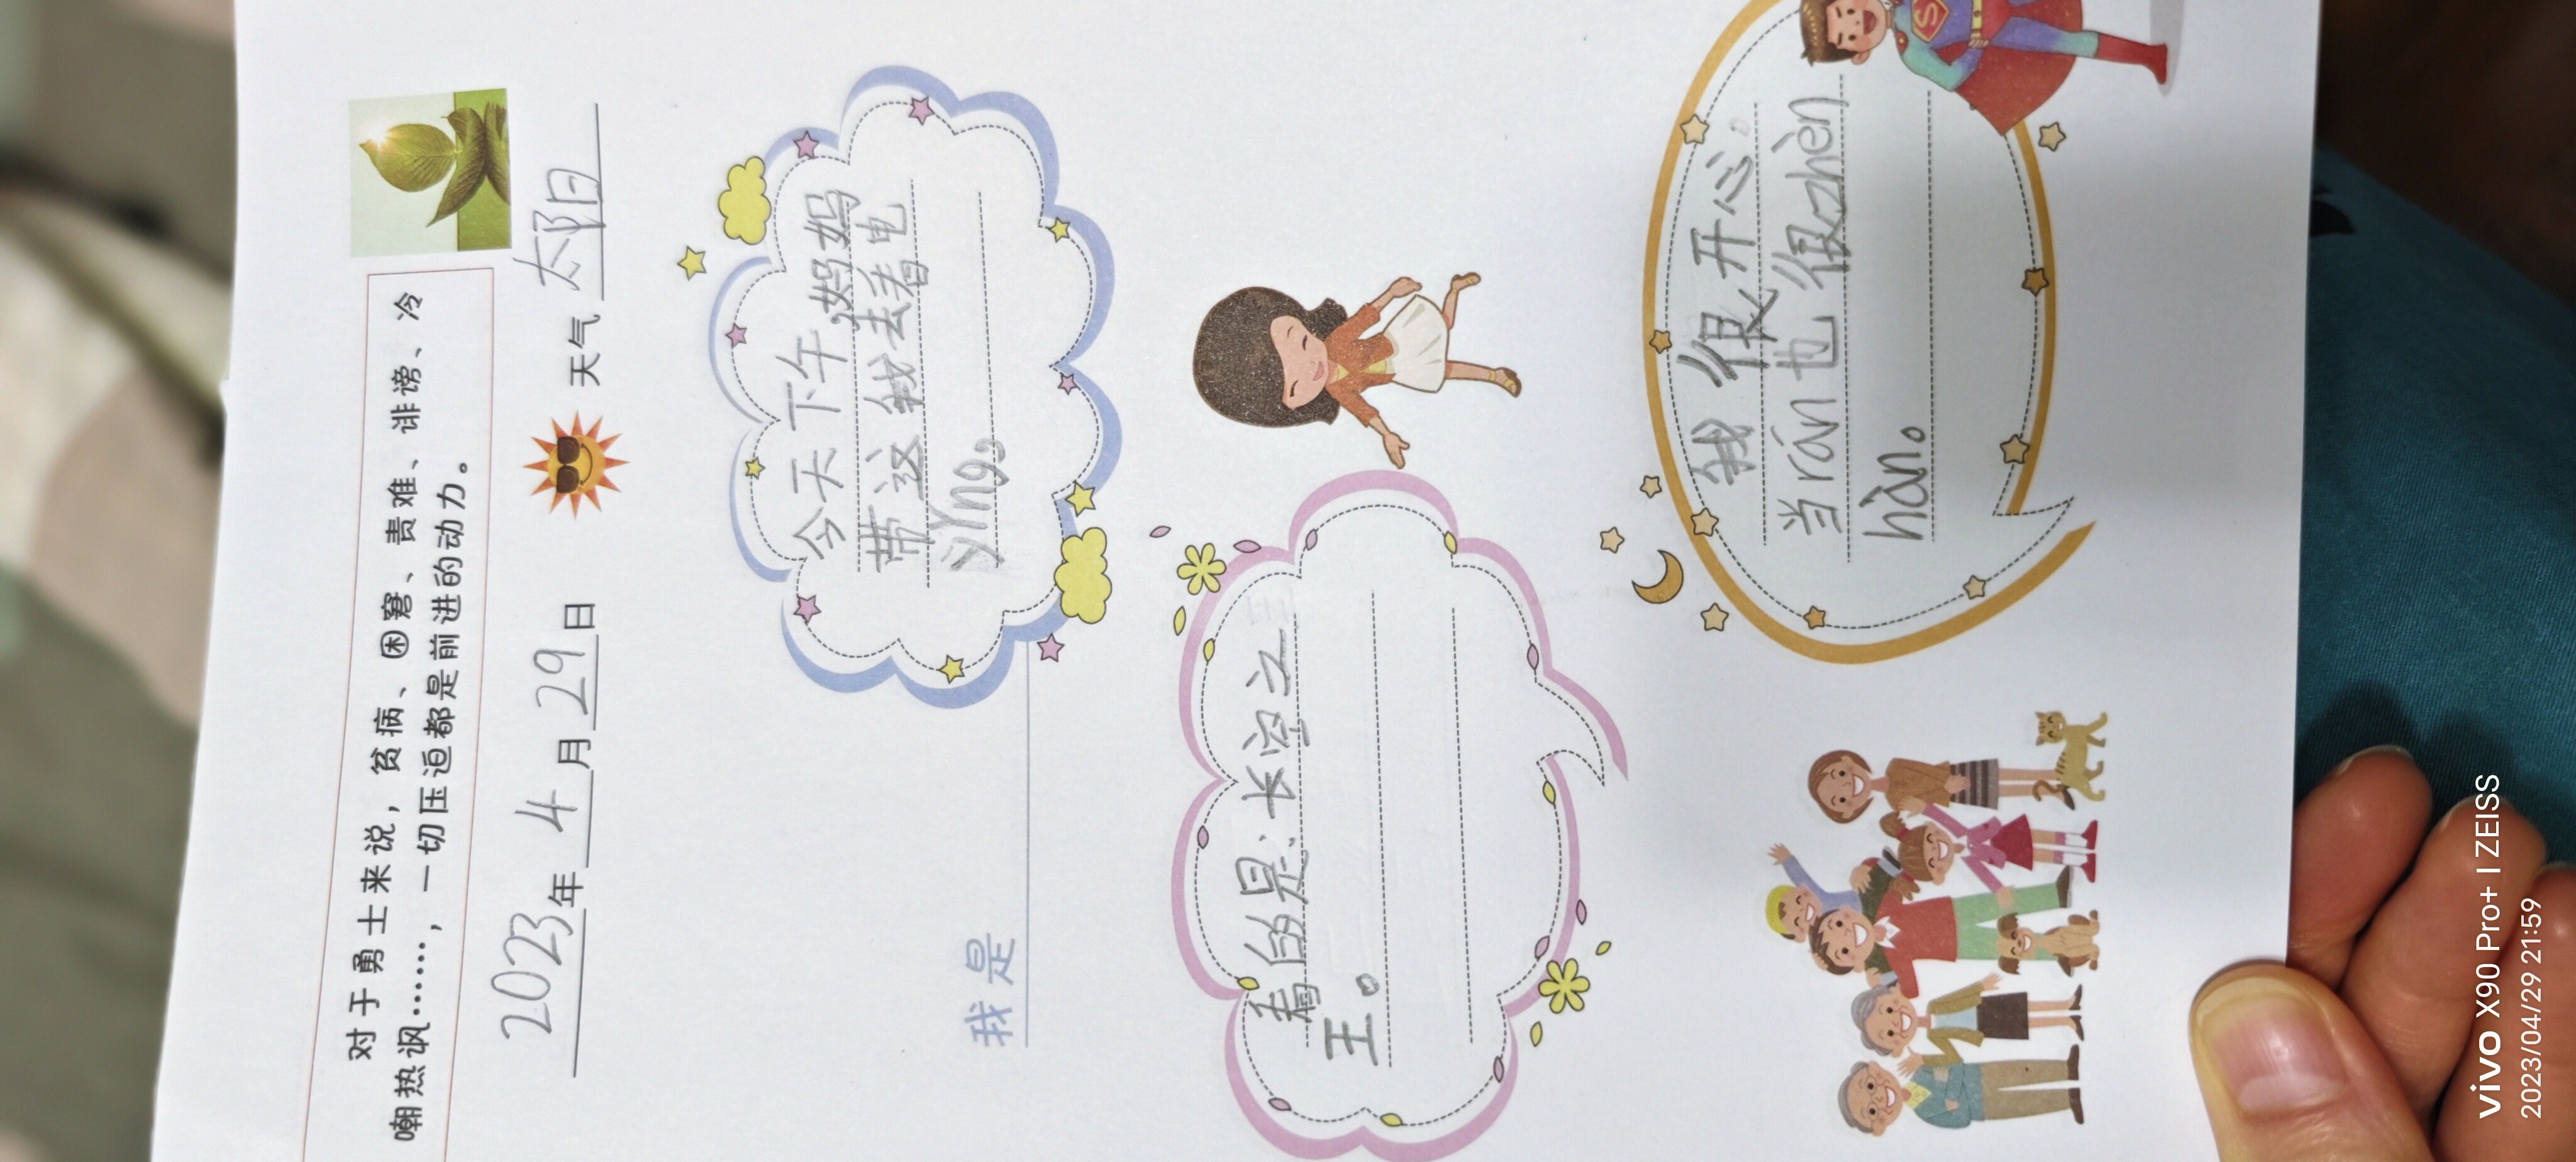 对于勇士来说，贫病、困窘、责难、诽谤、冷
嘲热讽……，一切压迫都是前进的动力。
2023年4月29日 天气 太阳
今天下午,妈妈
带这我去看电
yǐng。
我是
看的是:长空之
王。
我很开心。
当rán也很zhèn
hàn。
vivo X90 Pro+ | ZEISS
2023/04/29 21:59